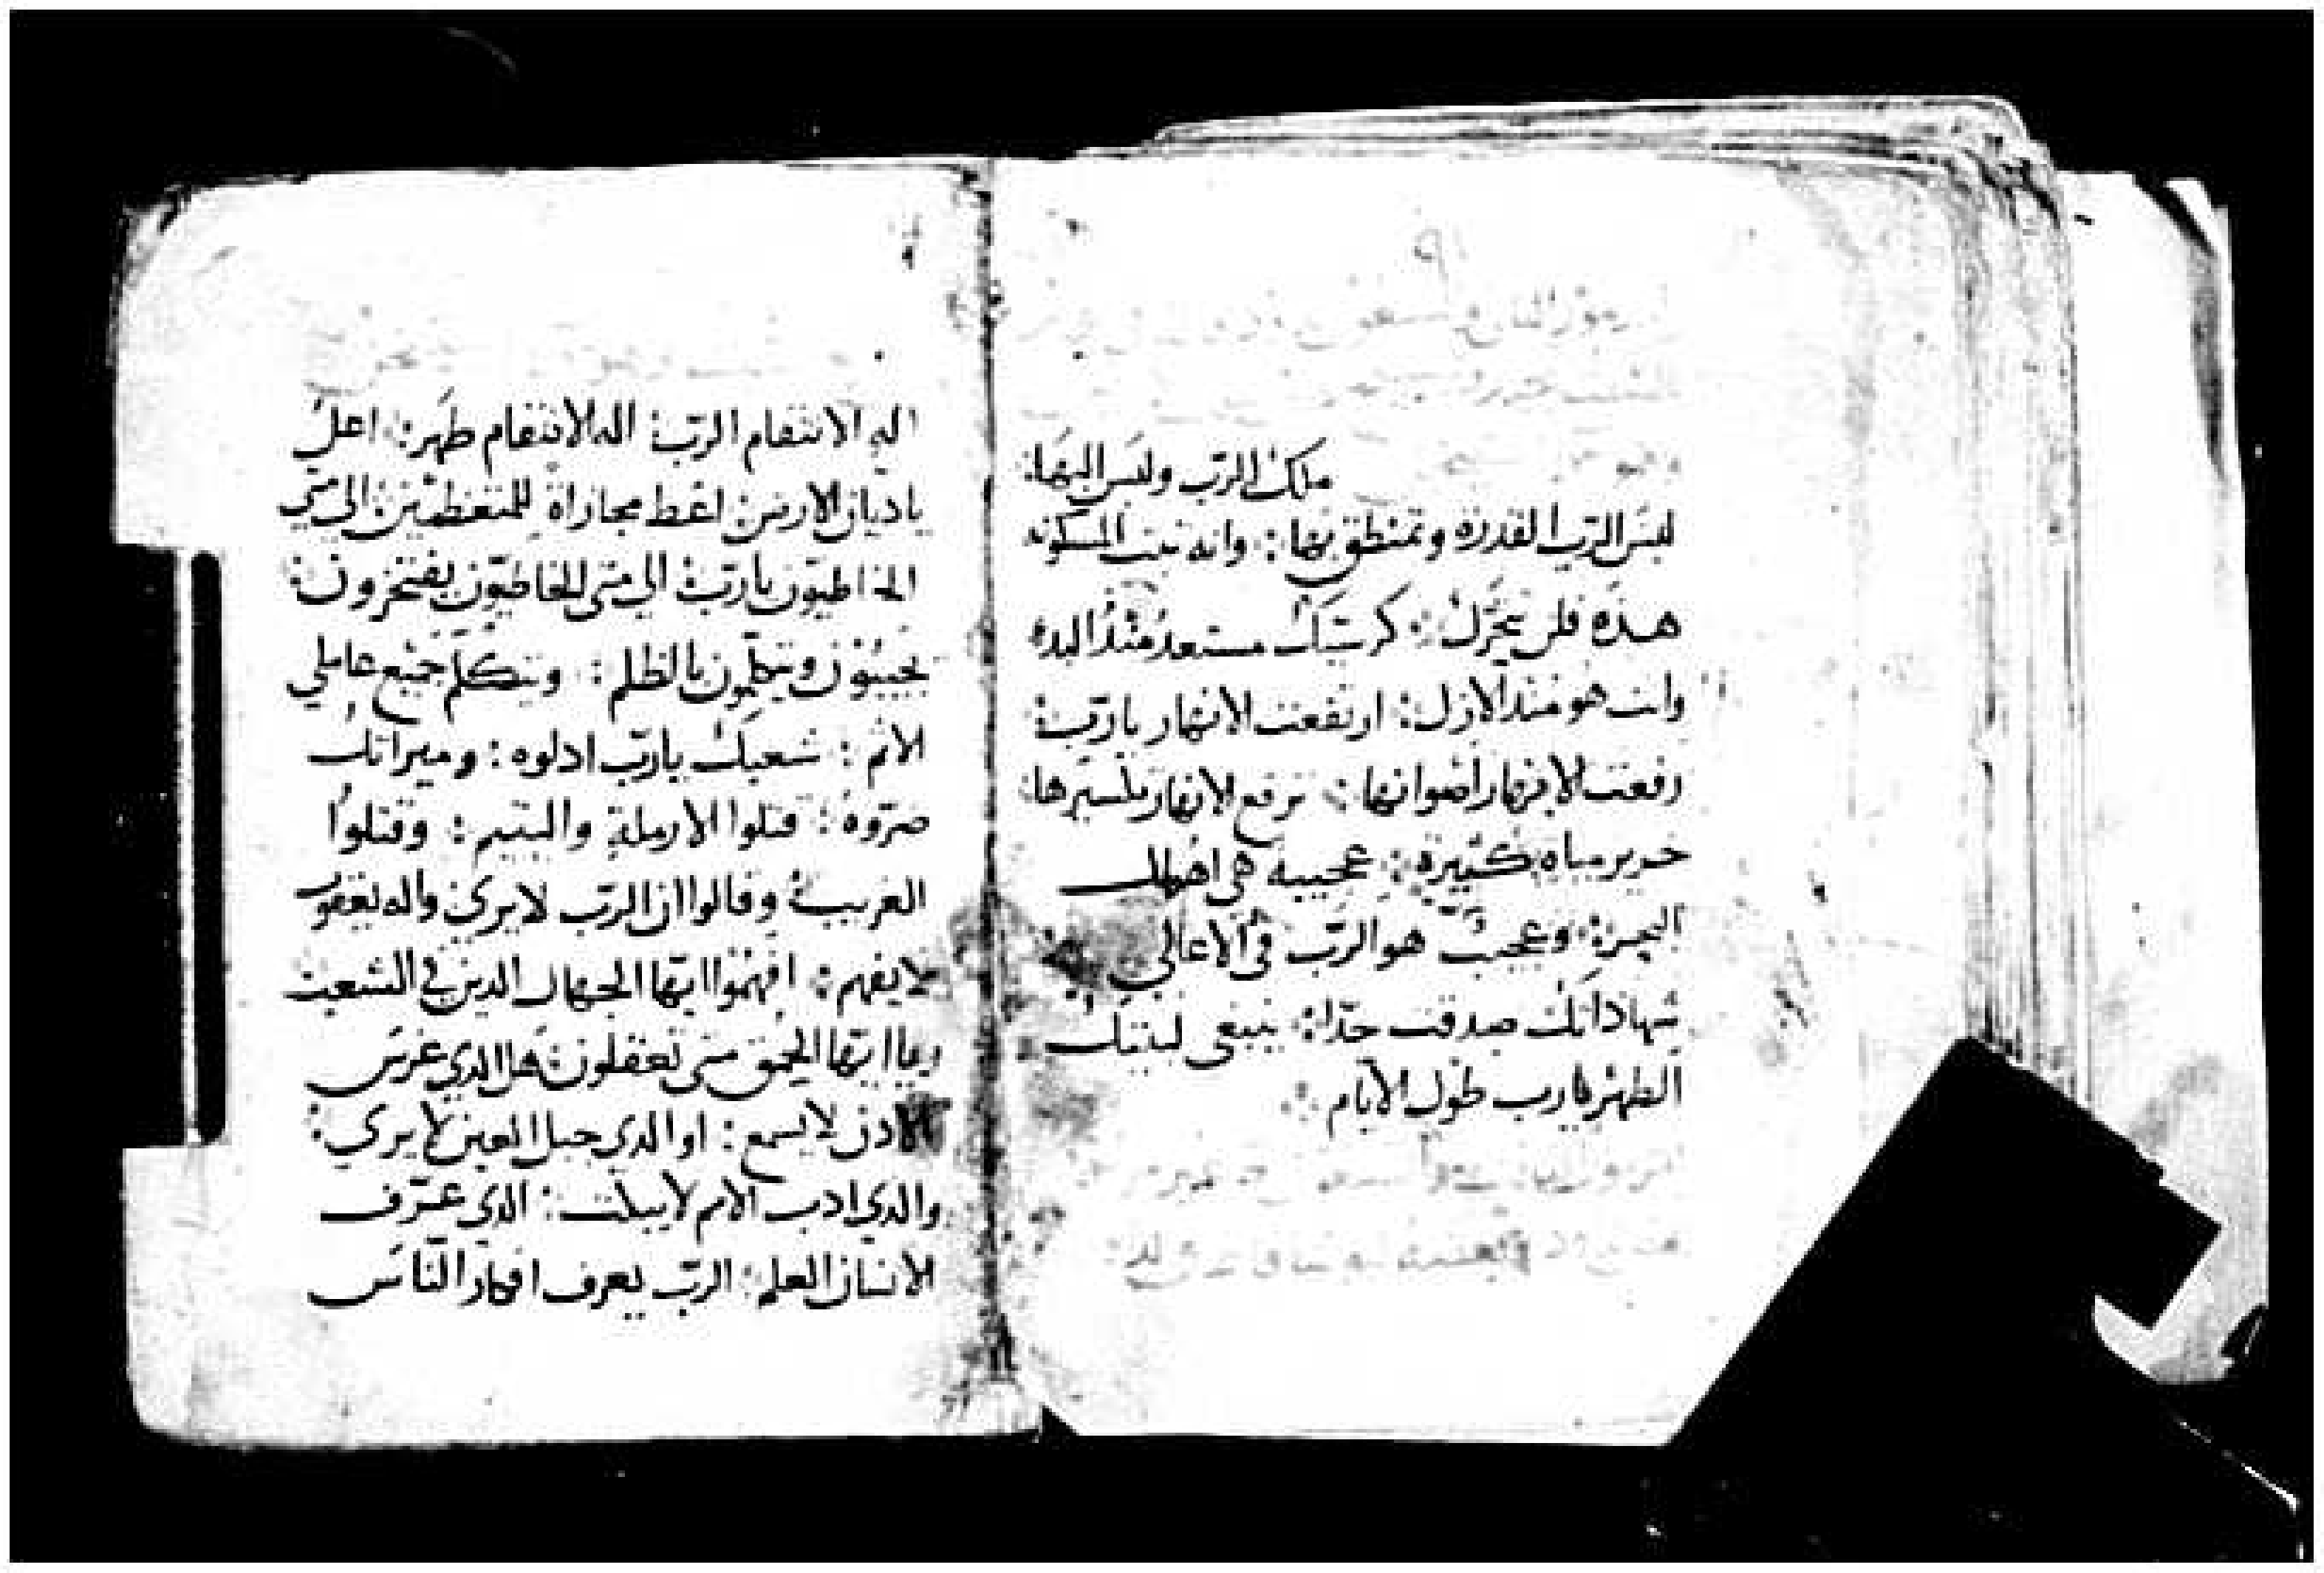 ملك الرّب ولبَس البَهَا:
لبسَ الرّب القدرَة وتمنطق بهَا: وانه ثبت المسكونه
هذه فلن تتحرّك: كرسيّك مستعد منْذُ البدءُ
وانت هو منذ الازل: ارتفعت الانهار يا ربّ:
رفعت الانهار اصواتها: ترفع الانهار تكسيرها:
خرير مياه كثيرة: عجيبة هي اهوال
البحر: وعجيبٌ هو الربّ في الاعالي
شهاداتك صدقت جدّا: ينبغي لبيتك
الطهر يا رب طول الايام
اله الانتقام الربّ: اله الانتقام ظهر: اعلُ
ياديان الارض: اعط مجازاة للمتعظمين: الى متي
الخاطيّون يا ربّ: الي متى الخاطيّون يفتخرون:
يجيبون ويتكلّمون بالظلم: ويتكلّم جميْع عاملي
الاثم: شعبك يا ربّ ادلوه: وميراثك
ضرّوه: قتلوا الارملة واليتيم: وقتلوُا
الغريب: وقالوا ان الربّ لا يري: واله يعقوب
لا يفهم: افهمُوا ايّها الجهال الدين في الشعب
ويا ايّها الحمْق متى تعقلون: هل الدي غرسَ
الادن لا يسمع: او الدي جبل العين لا يري:
والدي ادب الامم لا يبكت: الدي عرّف
الانسان العلم: الربّ يعرف افكار النّاسَ